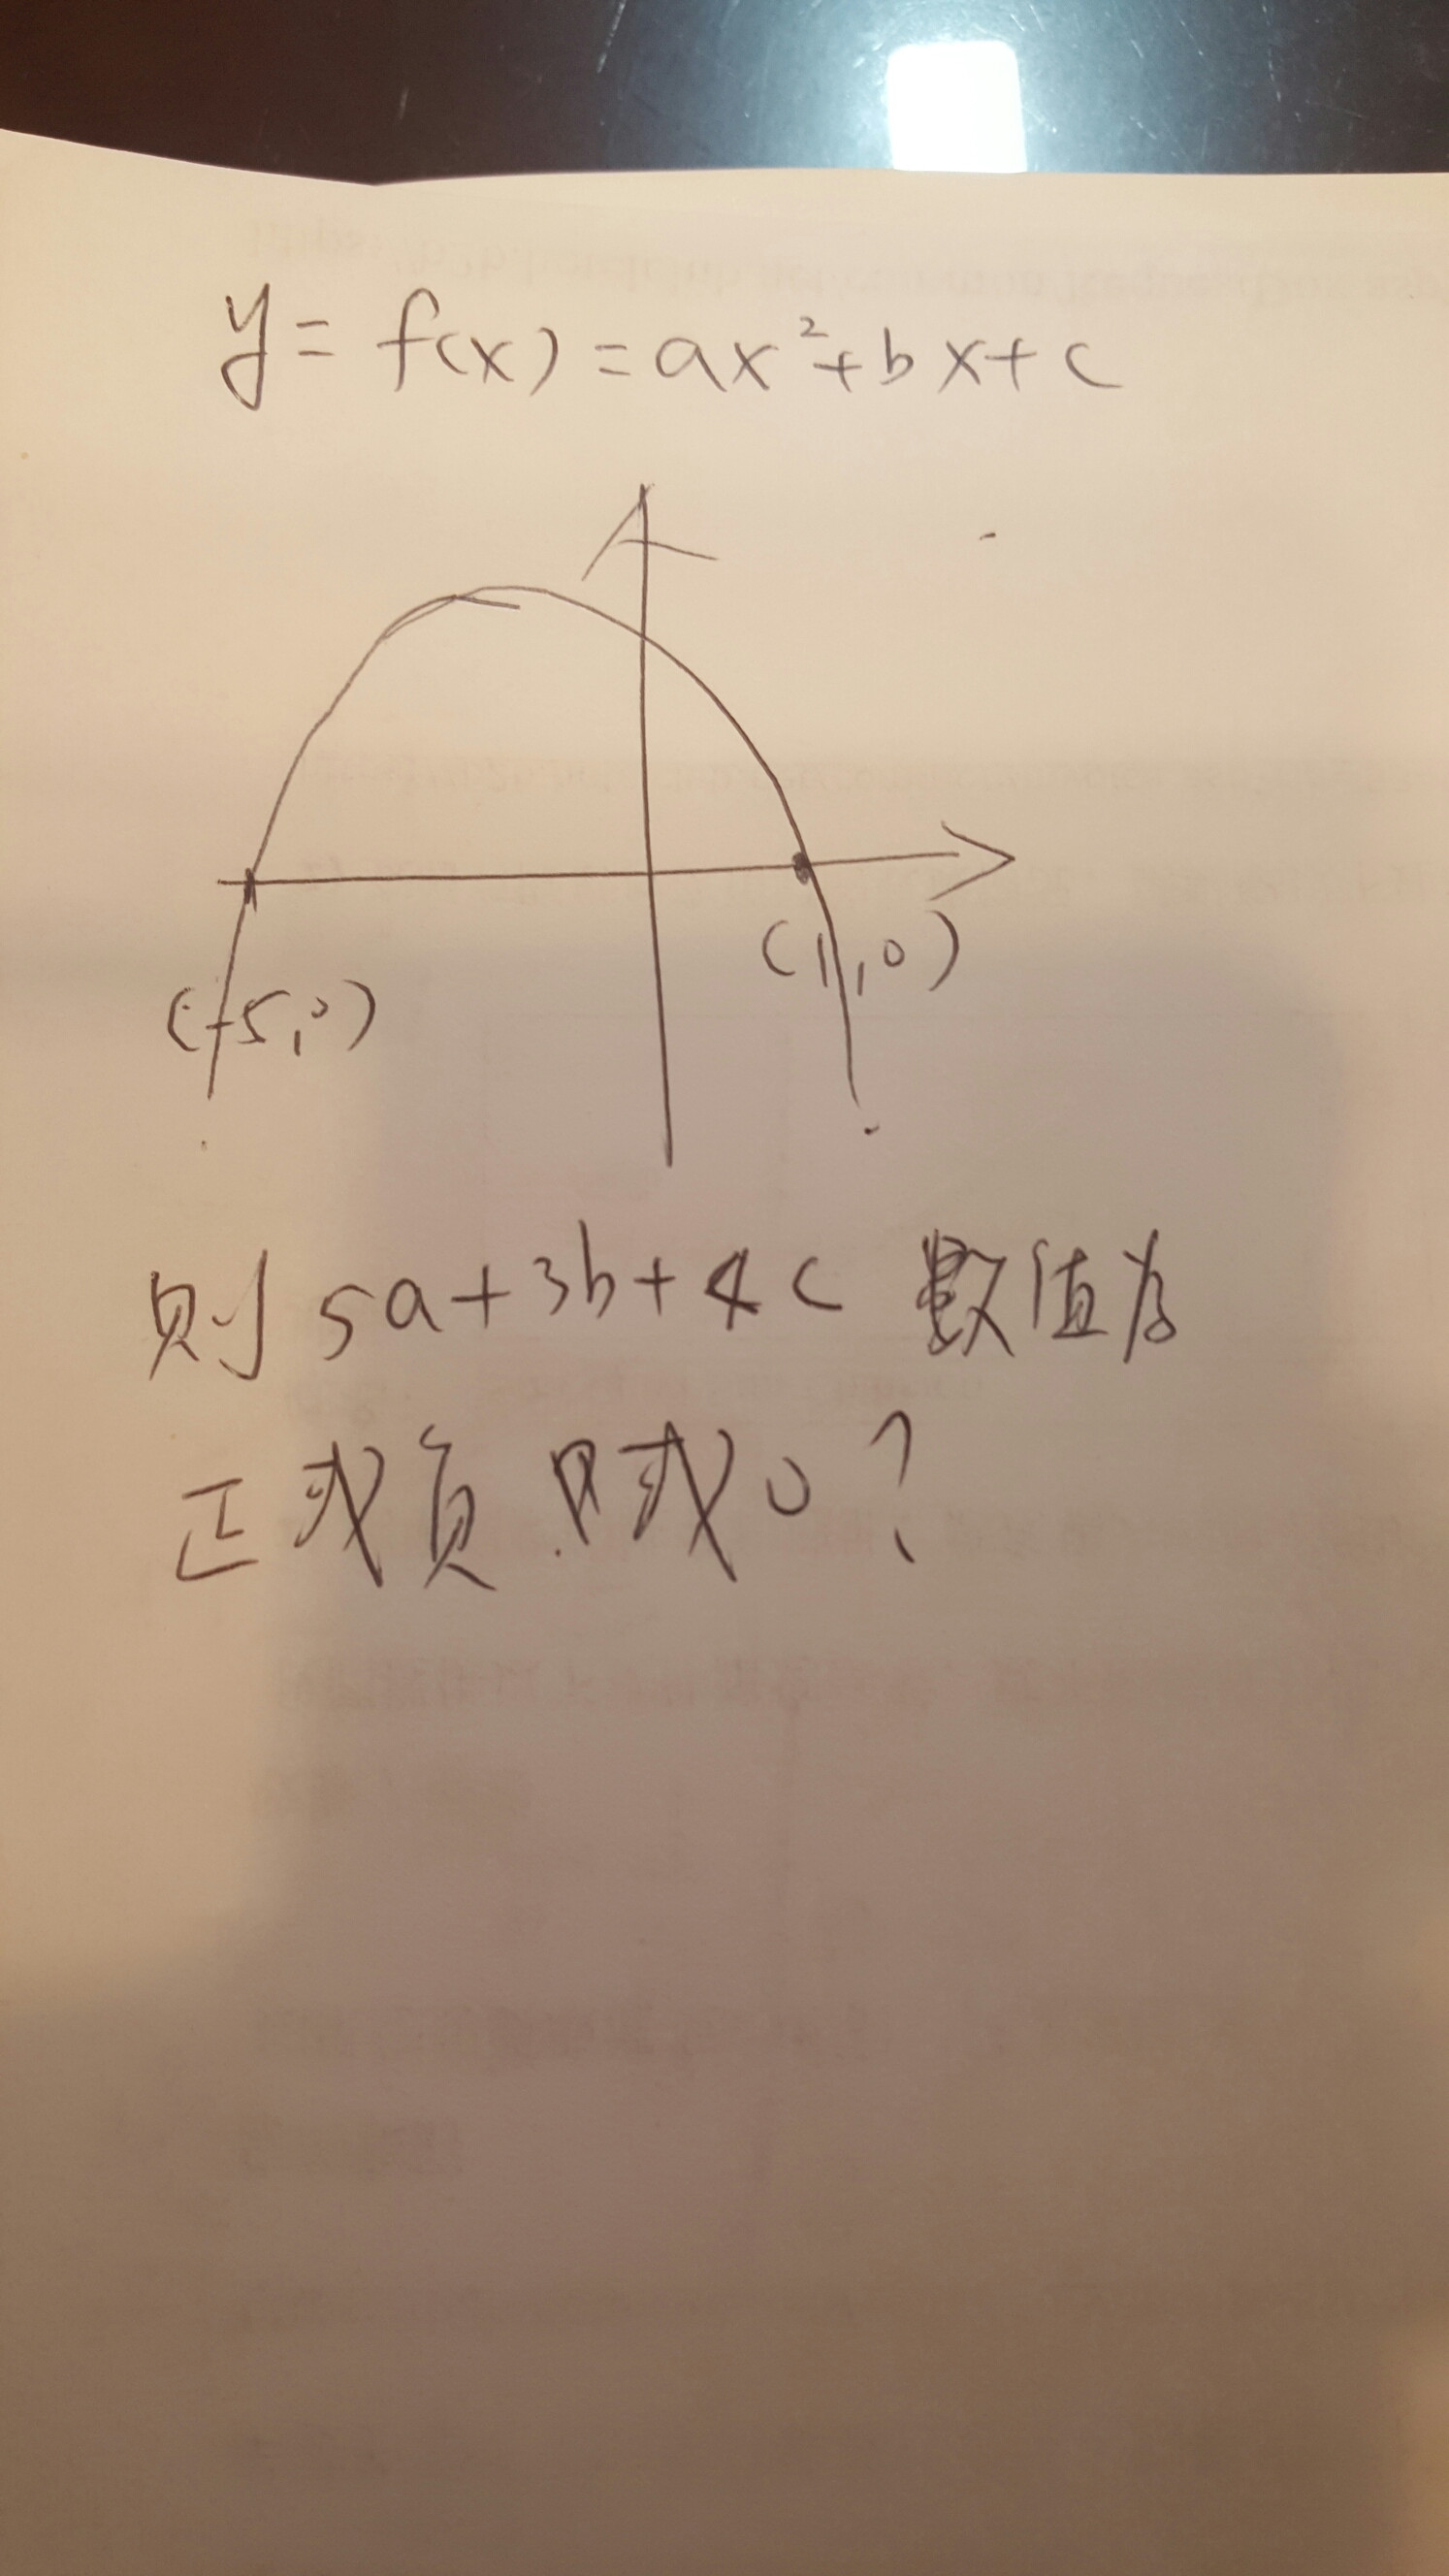 y = f(x) = ax²+bx+c
(-5,0)
(1,0)
则 5a+3b+4c 数值为
正或负 或0?